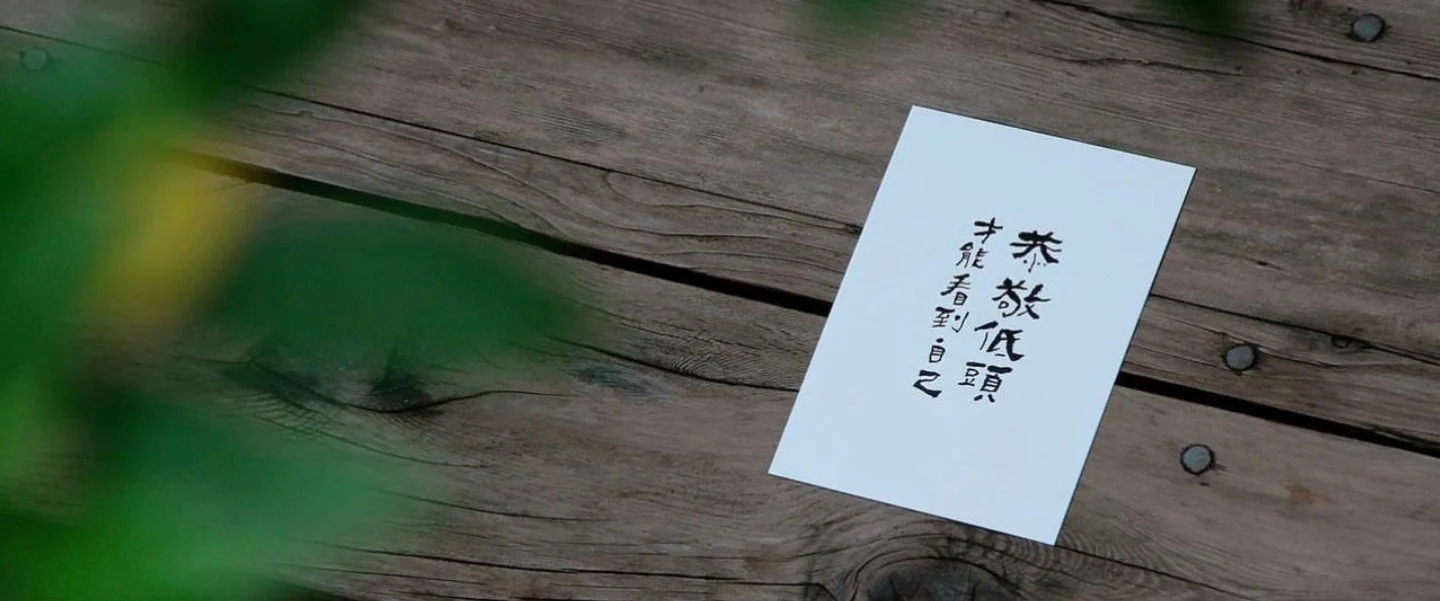 恭敬低頭
才能看到自己